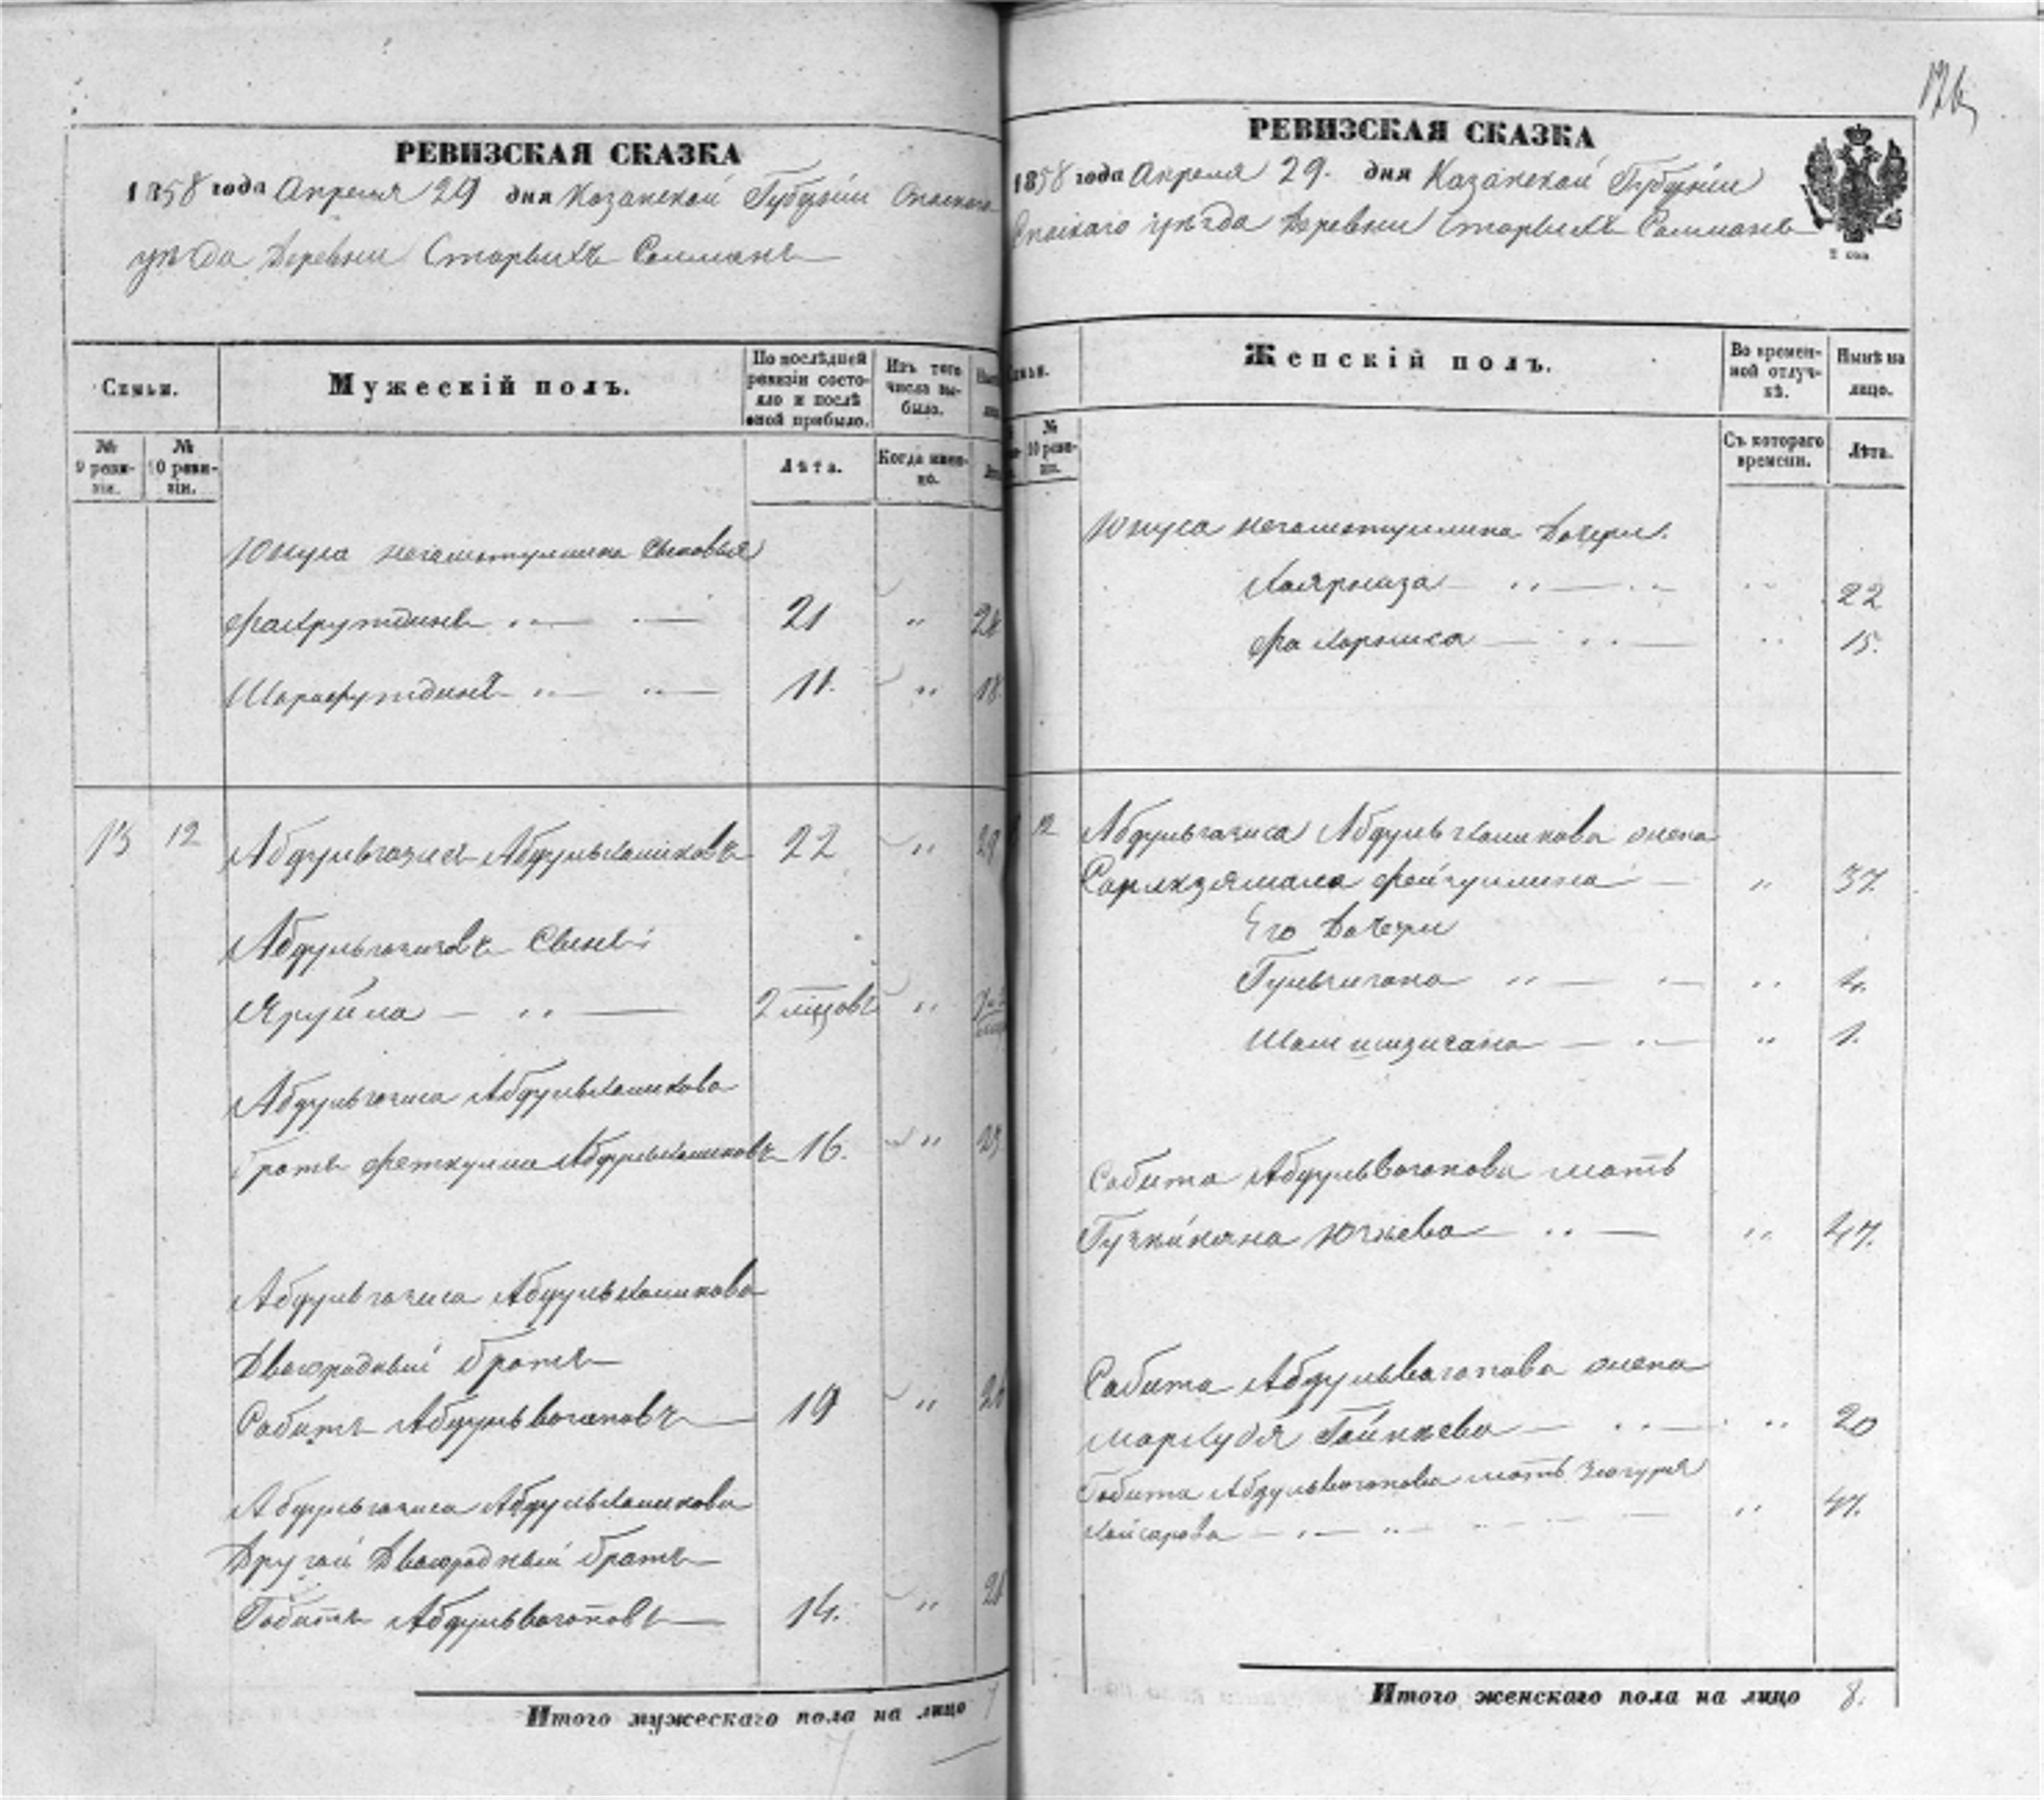 126
РЕВИЗСКАЯ СКАЗКА
1858 года Апреля 29 дня Казанской Губернiи Спаскаго
уѣзда Деревни Старыхъ Салманъ
Семьи.
Мужескiй полъ.
По послѣдней ревизiи состо-
яло и послѣ
оной прибыло.
Изъ того
числа вы-
было.
№
9 реви-
зiи.
№
10 реви-
зiи.
Лѣта.
Когда имен-
но.
Юнуса Негаматуллина Сыновья
Фахрутдинъ 21 " 28
Шарафутдинъ 11. " 18
13 12 Абдулъгазисъ Абдулъхаликовъ 22 " 29
Абдулъгазисовъ Сынъ:
Яруйла 2 мѣсовъ "
Абдулъгазиса Абдулъхаликова
братъ Феткулла Абдулъхаликовъ 16. " 23
Абдулъгазиса Абдулъхаликова
Двоюродный братъ
Сабитъ Абдулъвагаповъ 19 "
Абдулъгазиса Абдулъхаликова
Другой Двоюродный братъ
Габитъ Абдулъвагаповъ 14. "
Итого мужескаго пола на лицо 7
РЕВИЗСКАЯ СКАЗКА
1858 года Апреля 29. дня Казанской Губернiи
Спаскаго уѣзда Деревни Старыхъ Салманъ
Женскiй полъ.
Во времен-
ной отлуч-
кѣ.
Нынѣ на
лицо.
№
10 реви-
зiи.
Съ котораго
времени.
Лѣта.
Юнуса Негаматуллина Дочери.
Хаярниза 22
Фахарниса 15.
12 Абдулъгазиса Абдулъхаликова жена
Сарлкзямала Фейзуллина " 37.
Его Дочери
Гульчигана 4.
Шамшизигана " 1.
Сабита Абдулъвагапова мать
Юкаева " 47.
Сабита Абдулъвагапова жена
Мархубя Гайнкаева " 20
Габита Абдулъвагапова мать Зюгуря
Кайсарова " 47.
Итого женскаго пола на лицо 8.